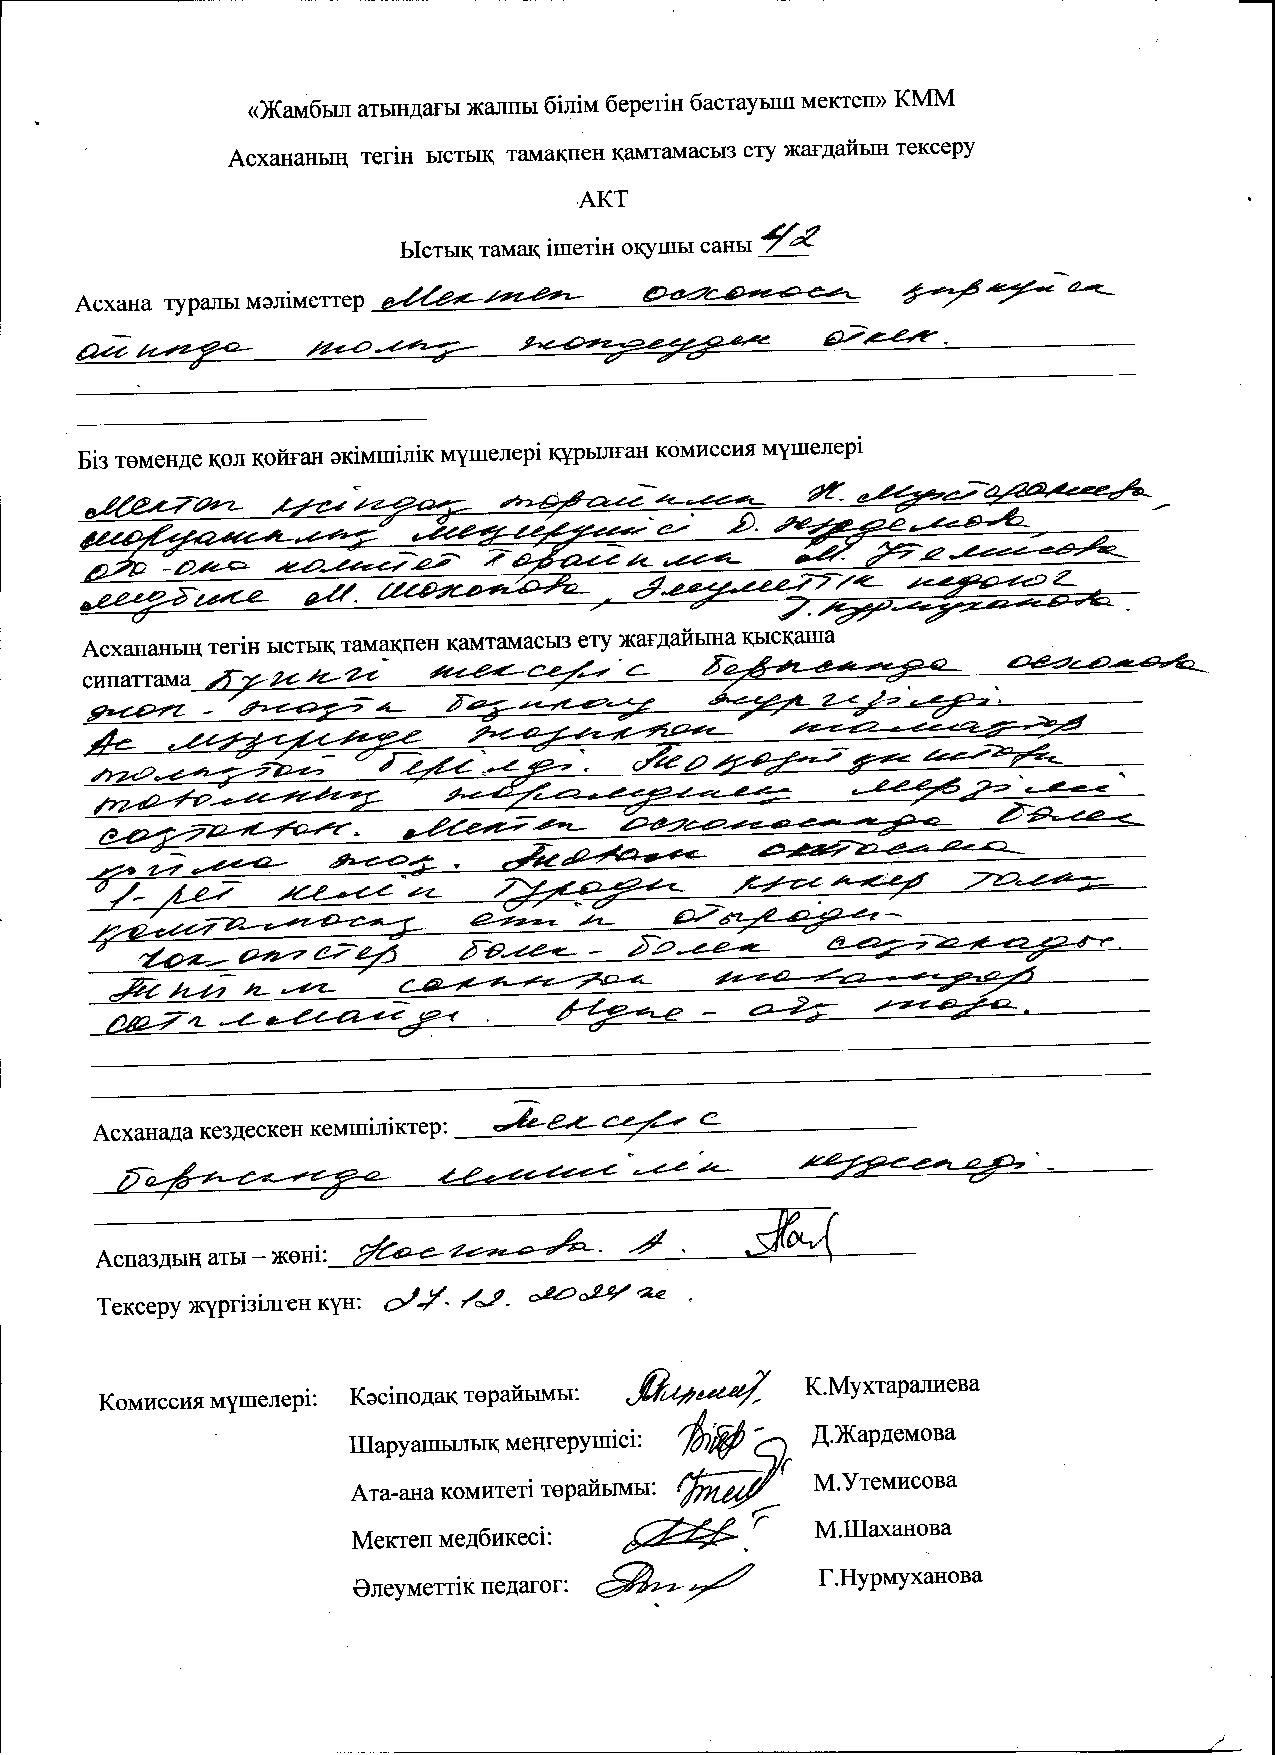 «Жамбыл атындағы жалпы білім беретін бастауыш мектеп» КММ
Асхананың тегін ыстық тамақпен қамтамасыз ету жағдайын тексеру
АКТ
Ыстық тамақ ішетін оқушы саны 42
Асхана туралы мәліметтер Мектеп асханасы қыркүйек
айында толық жөндеуден өткен.
Біз төменде қол қойған әкімшілік мүшелері құрылған комиссия мүшелері
Мектеп кәсіподақ төрайымы К. Мухтаралиева,
шаруашылық меңгерушісі Д. Жардемова,
ата-ана комитет төрайымы М. Утемисова
медбике М. Шаханова, Әлеуметтік педагог
Г. Нурмуханова.
Асхананың тегін ыстық тамақпен қамтамасыз ету жағдайына қысқаша
сипаттама Бүгінгі тексеріс барысында асханада
жан-жақты бақылау жүргізілді.
Ас мәзірінде жазылған тамақтар
толықтай берілді. Тоңазытқыштағы
тағамның жарамдылық мерзімі
сақталған. Мектеп асханасында бөлек
қойма жоқ. Тағам аптасына
1-рет келіп тұрады кәсіпкер толық
қамтамасыз етіп отырады.
бөлек-бөлек сақталады.
Тыйым салынған тағамдар
сатылмайды. Ыдыс-аяқ таза.
Асханада кездескен кемшіліктер: Тексеріс
барысында кемшілік кездеспеді.
Аспаздың аты – жөні: Насипова. А.
Тексеру жүргізілген күн: 27.12.2024 ж.
Комиссия мүшелері: Кәсіподақ төрайымы: К.Мухтаралиева
Шаруашылық меңгерушісі: Д.Жардемова
Ата-ана комитеті төрайымы: М.Утемисова
Мектеп медбикесі: М.Шаханова
Әлеуметтік педагог: Г.Нурмуханова